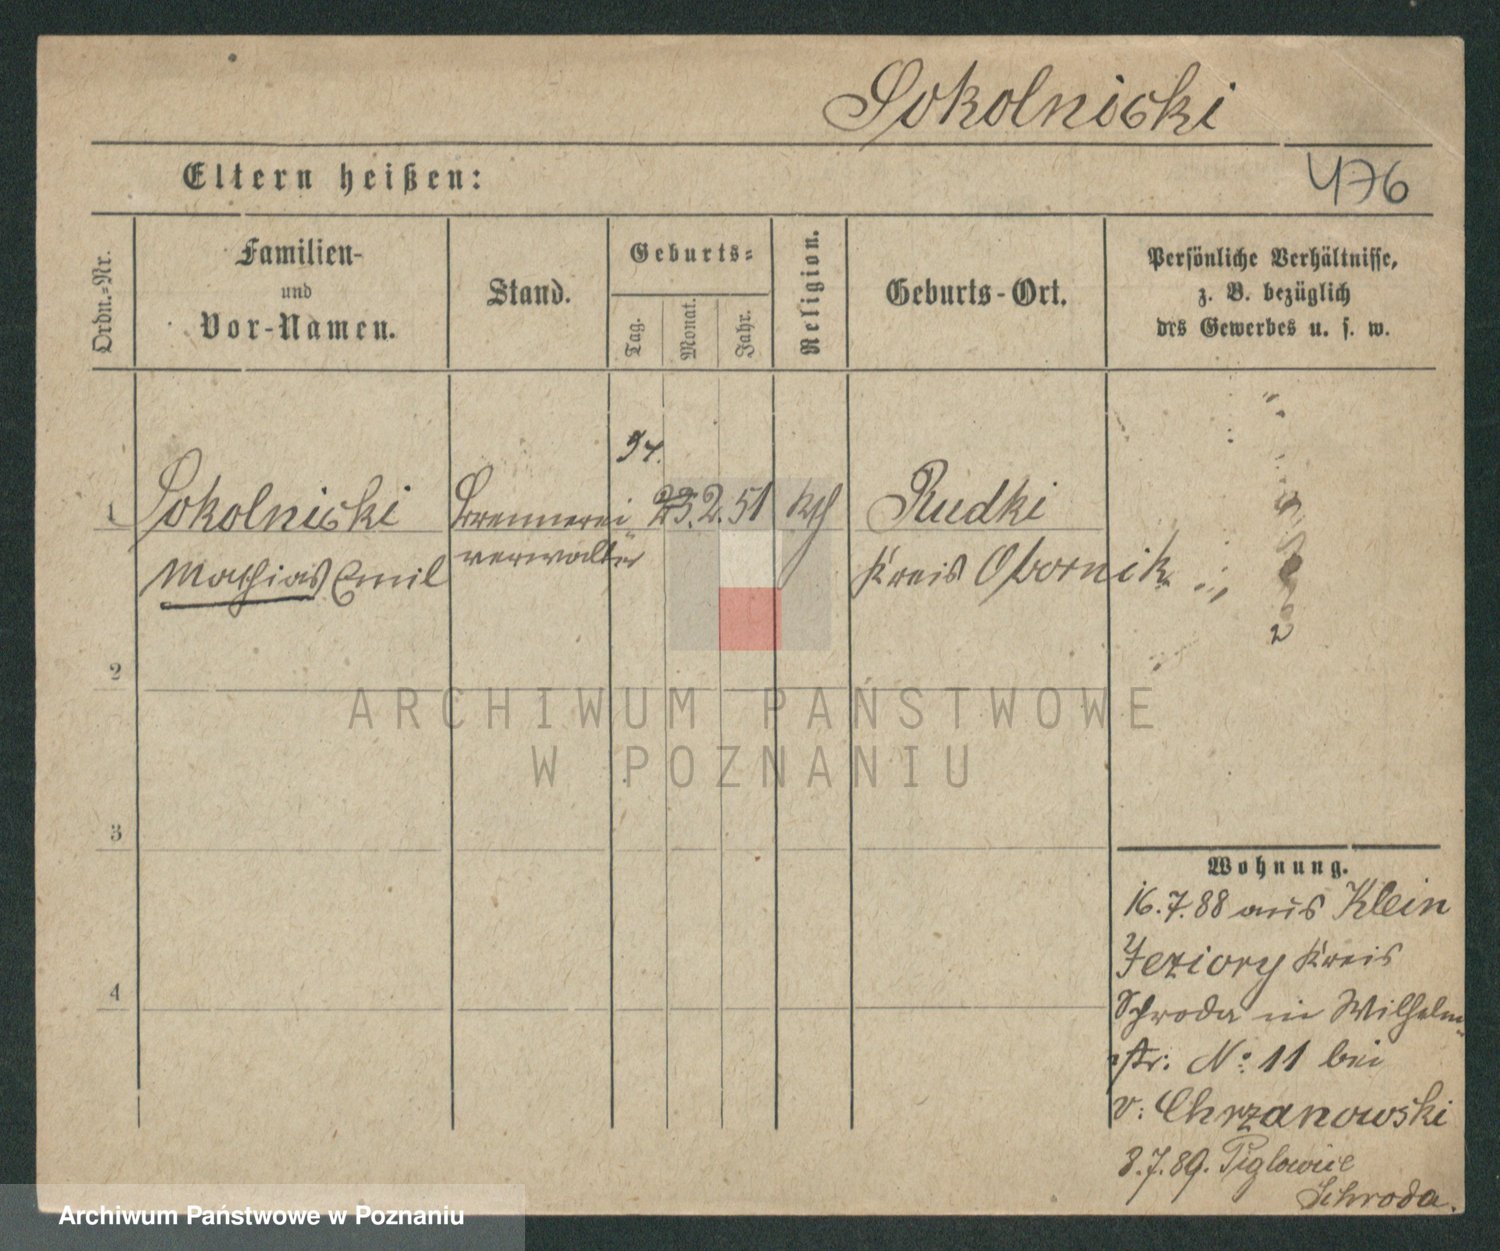 Sokolnicki
Eltern heißen:
476
Ordn.-Nr.
Familien-
und
Vor-Namen.
Stand.
Geburts-
Tag.
Monat.
Jahr.
Religion.
Geburts-Ort.
Persönliche Verhältnisse,
z. B. bezüglich
des Gewerbes u. s. w.
24.
1 Sokolnicki Brennerei 23. 2. 51 kth Rudki
Mathias Emil verwalter Kreis Obornik
2
ARCHIWUM PAŃSTWOWE
W POZNANIU
3
Wohnung.
16.7.88 aus Klein
Jeziory Kreis
4
Schroda in Wilhelm-
str: No: 11 bei
v: Chrzanowski
8.7.89. Piglowice
Schroda.
Archiwum Państwowe w Poznaniu